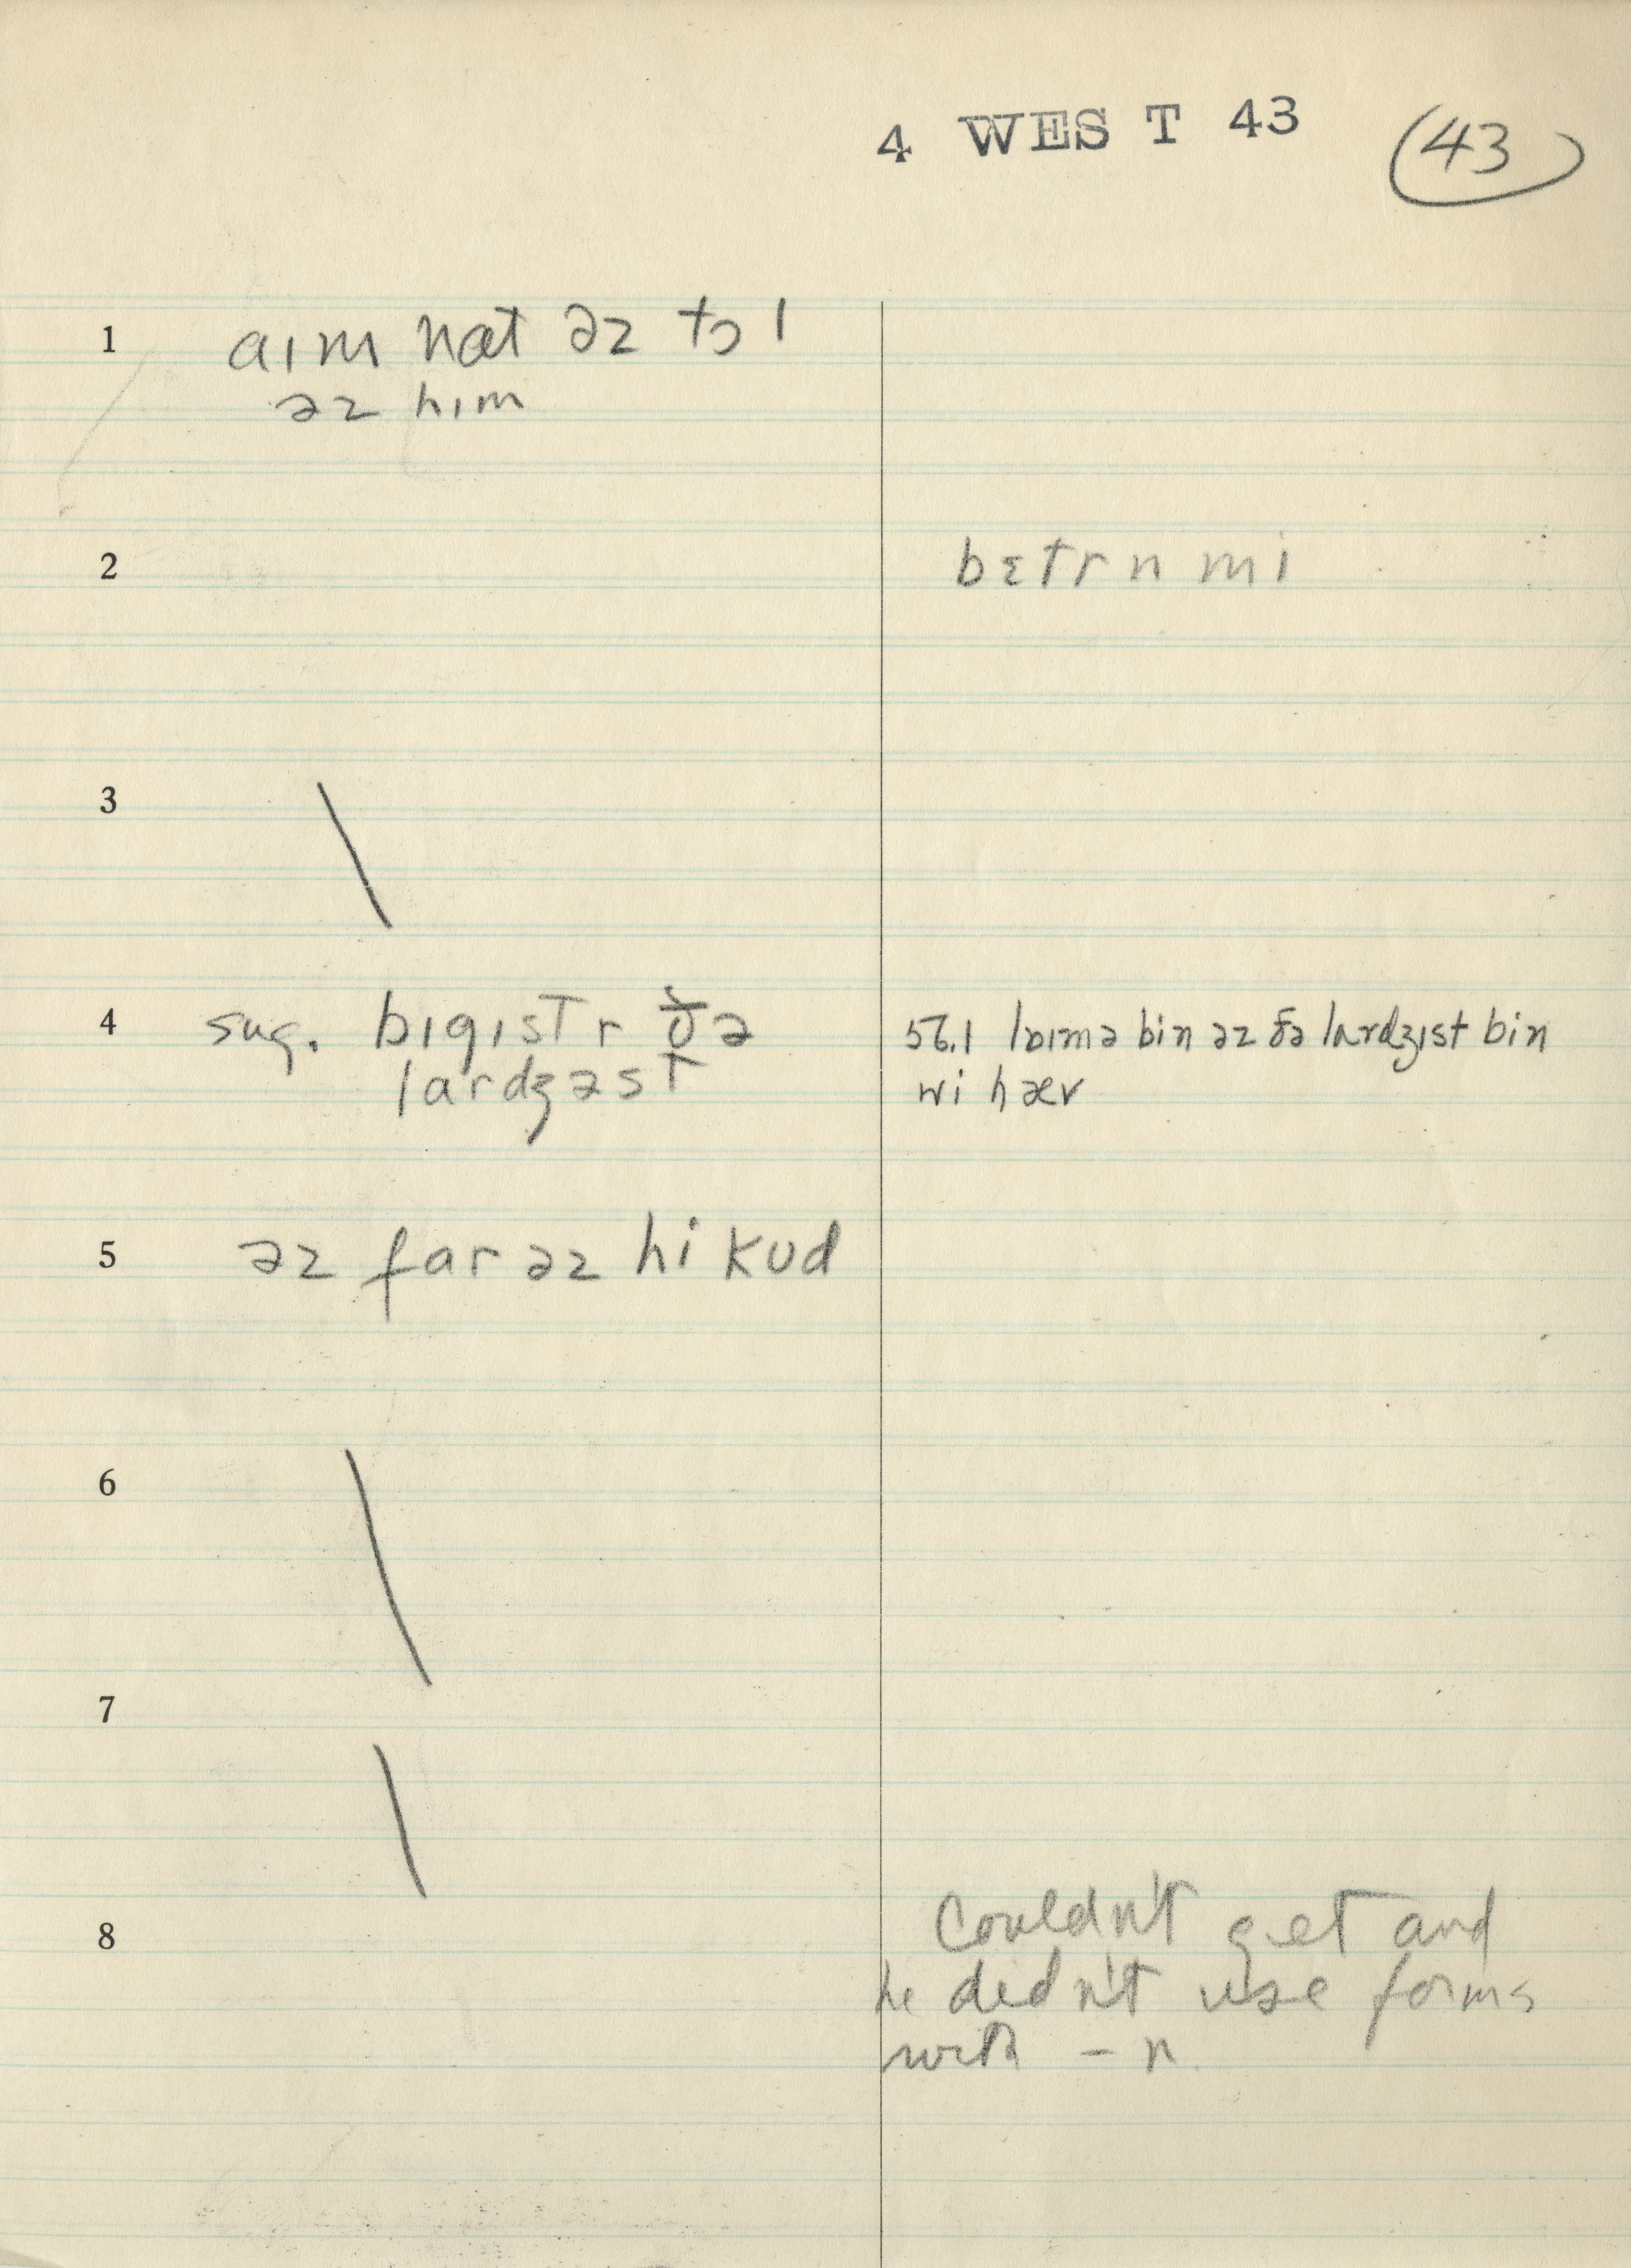 4 WEST 43 (43)
1 aım nat əz tɔl
əz hım
2 bɛtr n mi
3
4 sug. bıgıst r ðə
lardʒəst
56.1 laımə bin əz ðə lardʒıst bin
wi hæv
5 əz far əz hi kud
6
7
8 Couldn't get and
he didn't use forms
with – n